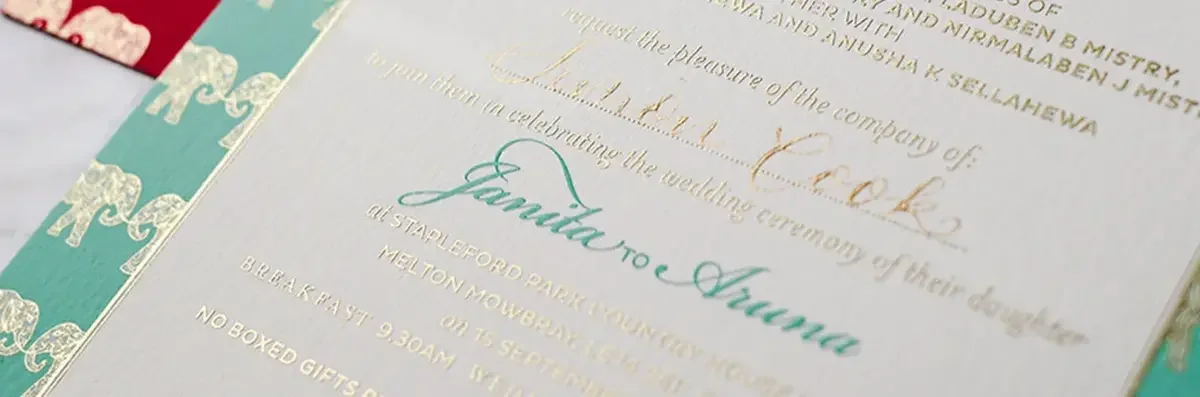 OF
LADUBEN B MISTRY,
RY AND NIRMALABEN J MISTR
HER WITH
EWA AND ANUSHA K SELLAHEWA
request the pleasure of the company of:
Cook
to join them in celebrating the wedding ceremony of their daughter
Janita TO Aruna
at STAPLEFORD PARK COUNTRY HOUSE
MELTON MOWBRAY,
on 15 SEPTEMBER
BREAKFAST 9.30AM
NO BOXED GIFTS